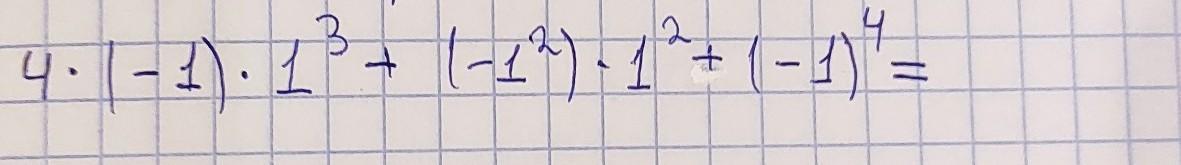 4 · (-1) · 1³ + (-1²) · 1² + (-1)⁴ =